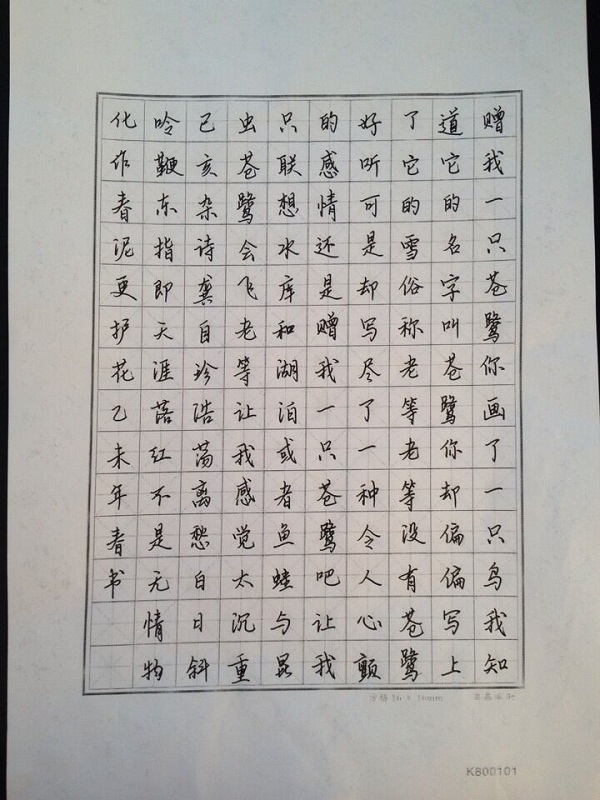 赠我一只苍鹭你画了一只鸟我知
道它的名字叫苍鹭你却偏偏写上
了它的雪俗称老等老等没有苍鹭
好听可是却写尽了一种令人心颤
的感情还是赠我一只苍鹭吧让我
只联想水库和湖泊或者鱼蛙与昆
虫苍鹭会飞老等让我感觉太沉重
己亥杂诗龚自珍浩荡离愁白日斜
吟鞭东指即天涯落红不是无情物
化作春泥更护花乙未年春书
K800101